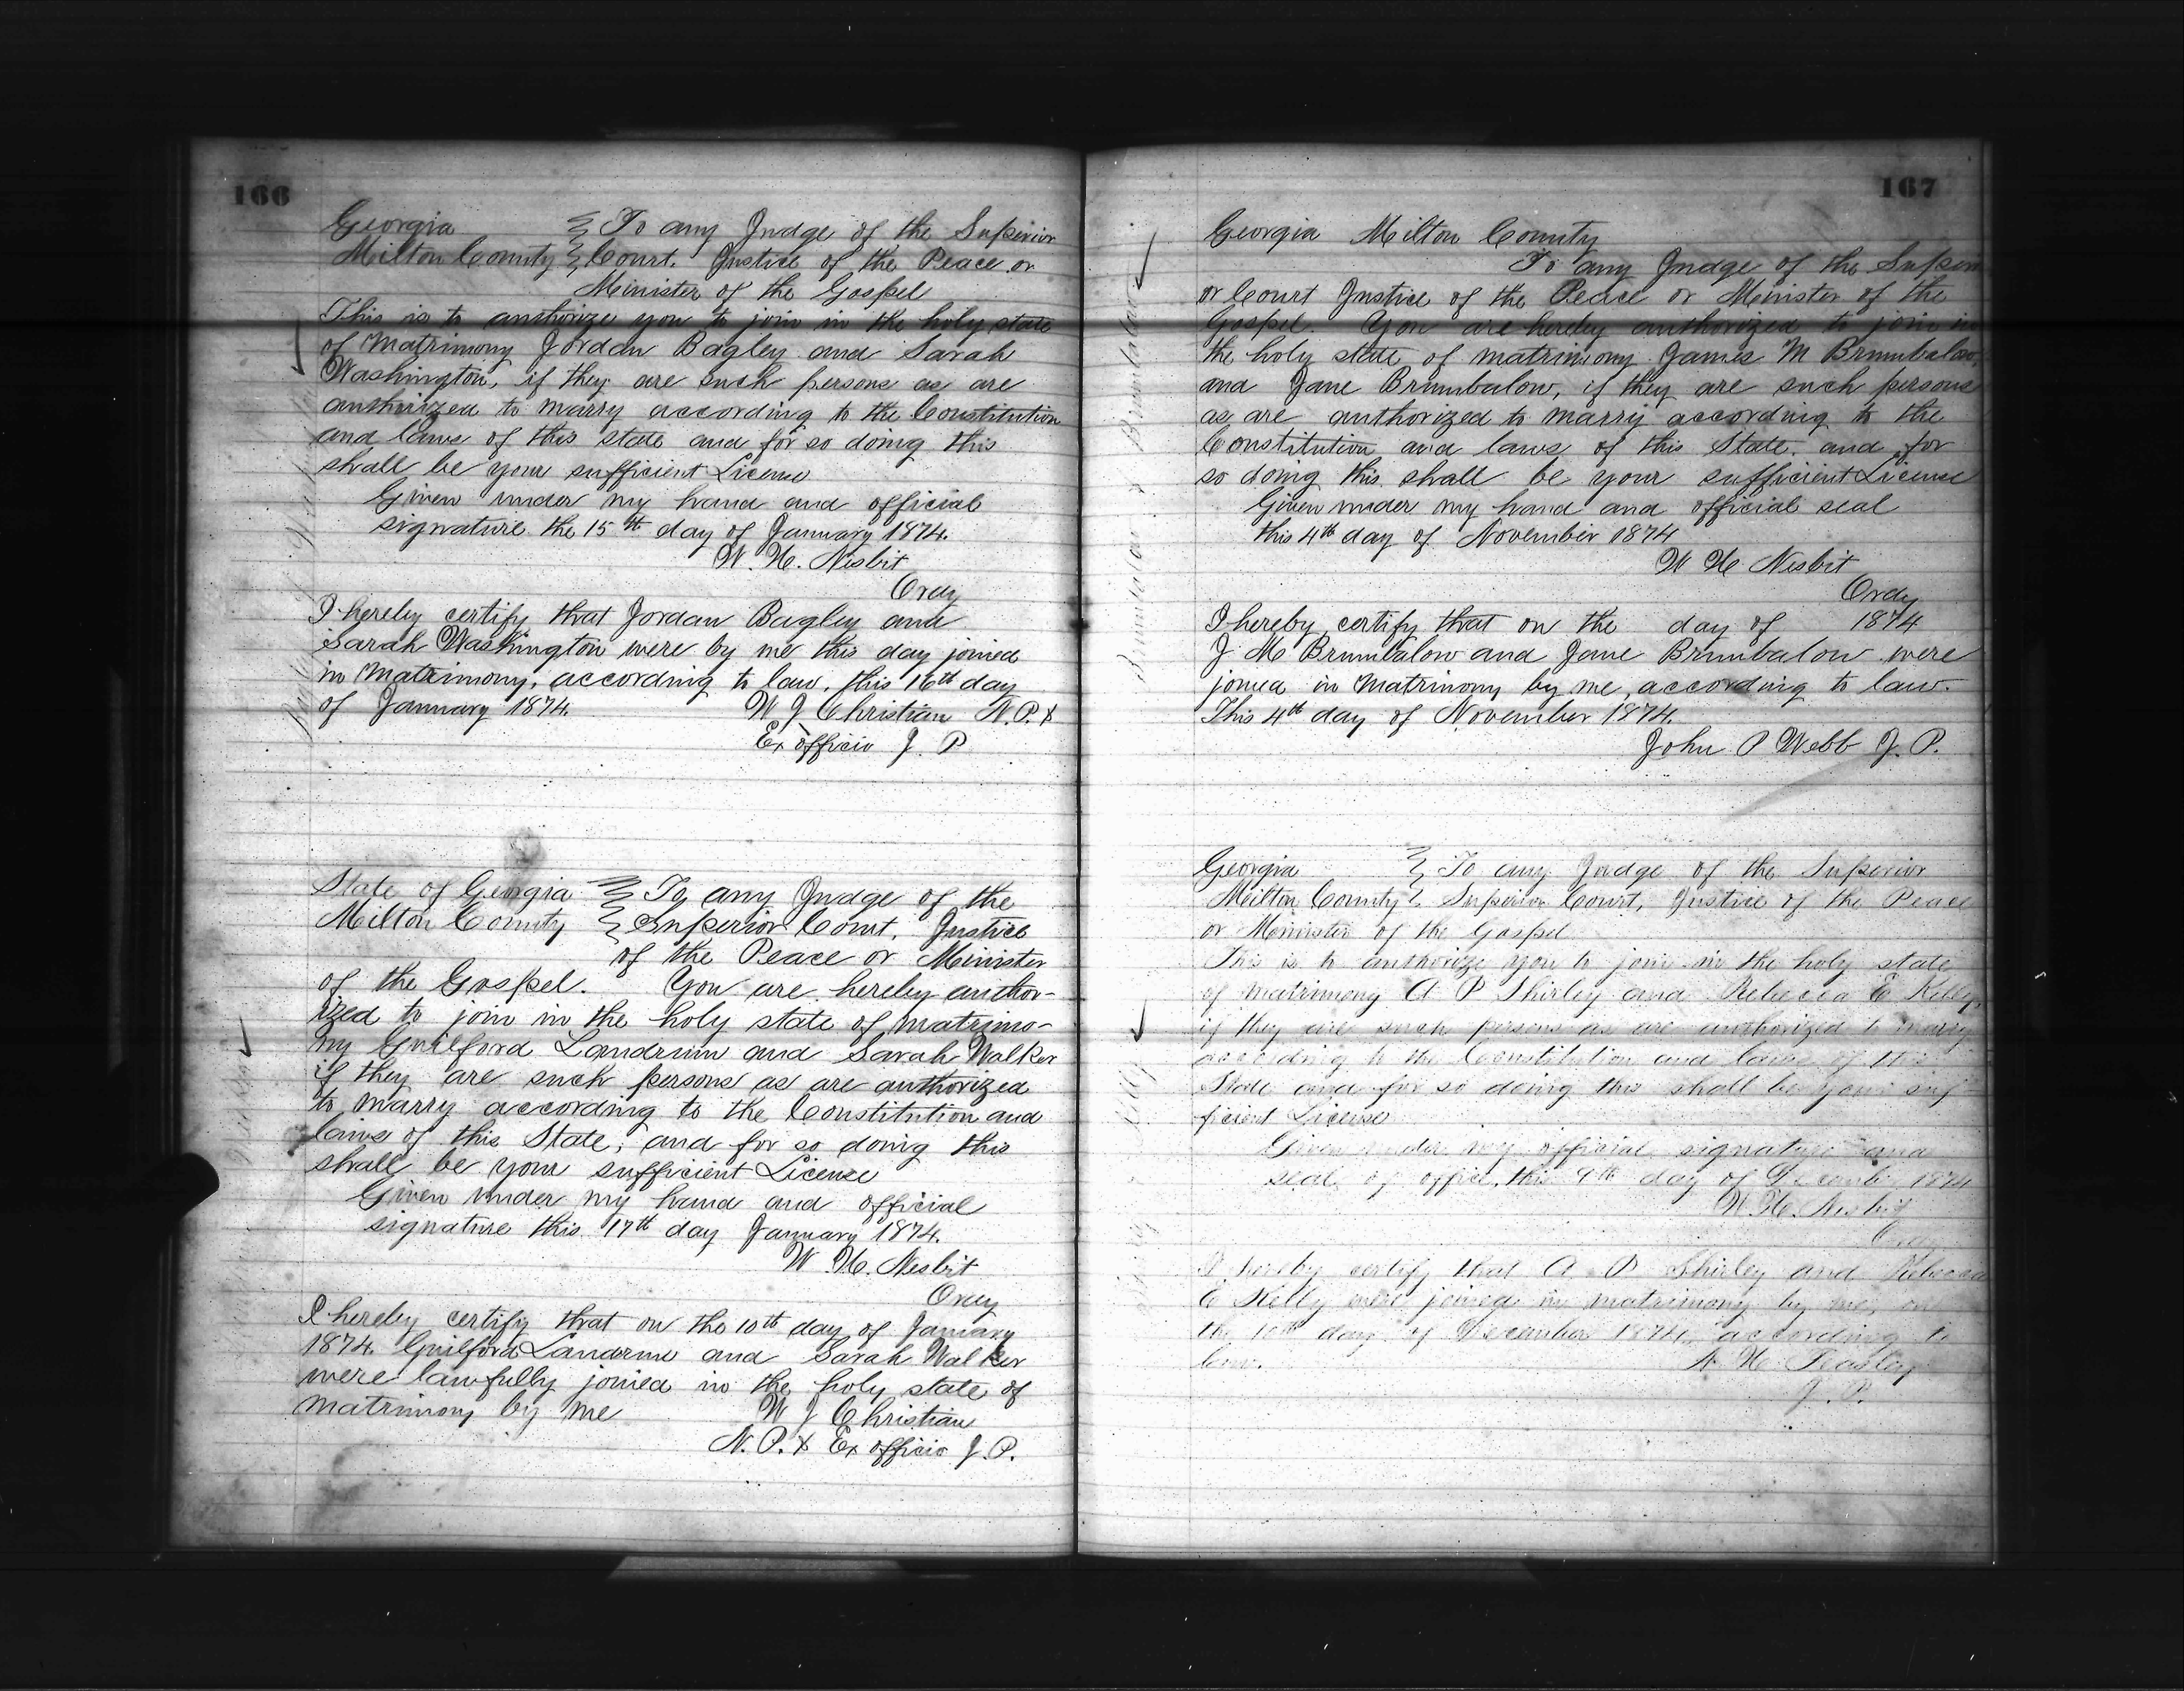 166
Georgia To any Judge of the Superior
Milton County Court. Justice of the Peace or
Minister of the Gospel
This is to authorize you to join in the holy state
of Matrimony Jordan Bagley and Sarah
Washington, if they are such persons as are
authorized to marry according to the Constitution
and laws of this state and for so doing this
shall be your sufficient License
Given under my hand and official
signature the 15th day of January 1874.
W. H. Nesbit
Ordy
I hereby certify that Jordan Bagley and
Sarah Washington were by me this day joined
in Matrimony, according to law, this 16th day
of January 1874. W J Christian N.P. &
Ex officio J. P
State of Georgia To any Judge of the
Milton County Superior Court, Justice
of the Peace or Minister
of the Gospel. You are hereby author-
ized to join in the holy state of matrimo-
ny Guilford Landrum and Sarah Walker
if they are such persons as are authorized
to marry according to the Constitution and
laws of this State, and for so doing this
shall be your sufficient License
Given under my hand and official
signature this 17th day January 1874.
W H. Nesbit
Ordy
I hereby certify that on the 10th day of January
1874. Guilford Landrum and Sarah Walker
were lawfully joined in the holy state of
matrimony by me W J Christian
N. P. & Ex officio J. P.
167
Georgia Milton County
To any Judge of the Superi
or Court Justice of the Peace or Minister of the
Gospel. You are hereby authorized to join in
the holy state of matrimony James M Brumbalow
and Jane Brumbalow, if they are such persons
as are authorized to marry according to the
Constitution and laws of this State. and for
so doing this shall be your sufficient License
Given under my hand and official seal
this 4th day of November 1874
W H Nesbit
Ordy
I hereby certify that on the day of 1874
J. M Brumbalow and Jane Brumbalow were
joined in Matrimony by me, according to law.
This 4th day of November 1874.
John P Webb J. P.
Georgia To any Judge of the Superior
Milton County Superior Court, Justice of the Peace
or Minister of the Gospel
This is to authorize you to join in the holy state
of matrimony A P Shirley and Rebecca E Kelly,
if they are such persons as are authorized to marry
according to the Constitution and laws of this
State and for so doing this shall be your suf-
ficient License
Given under my official signature and
seal of office, this 9th day of December 1874
W. H. Nesbit
Ordy
I hereby certify that A P Shirley and Rebecca
E Kelly were joined in matrimony by me, on
the 10th day of December 1874, according to
law. H.
J. P.